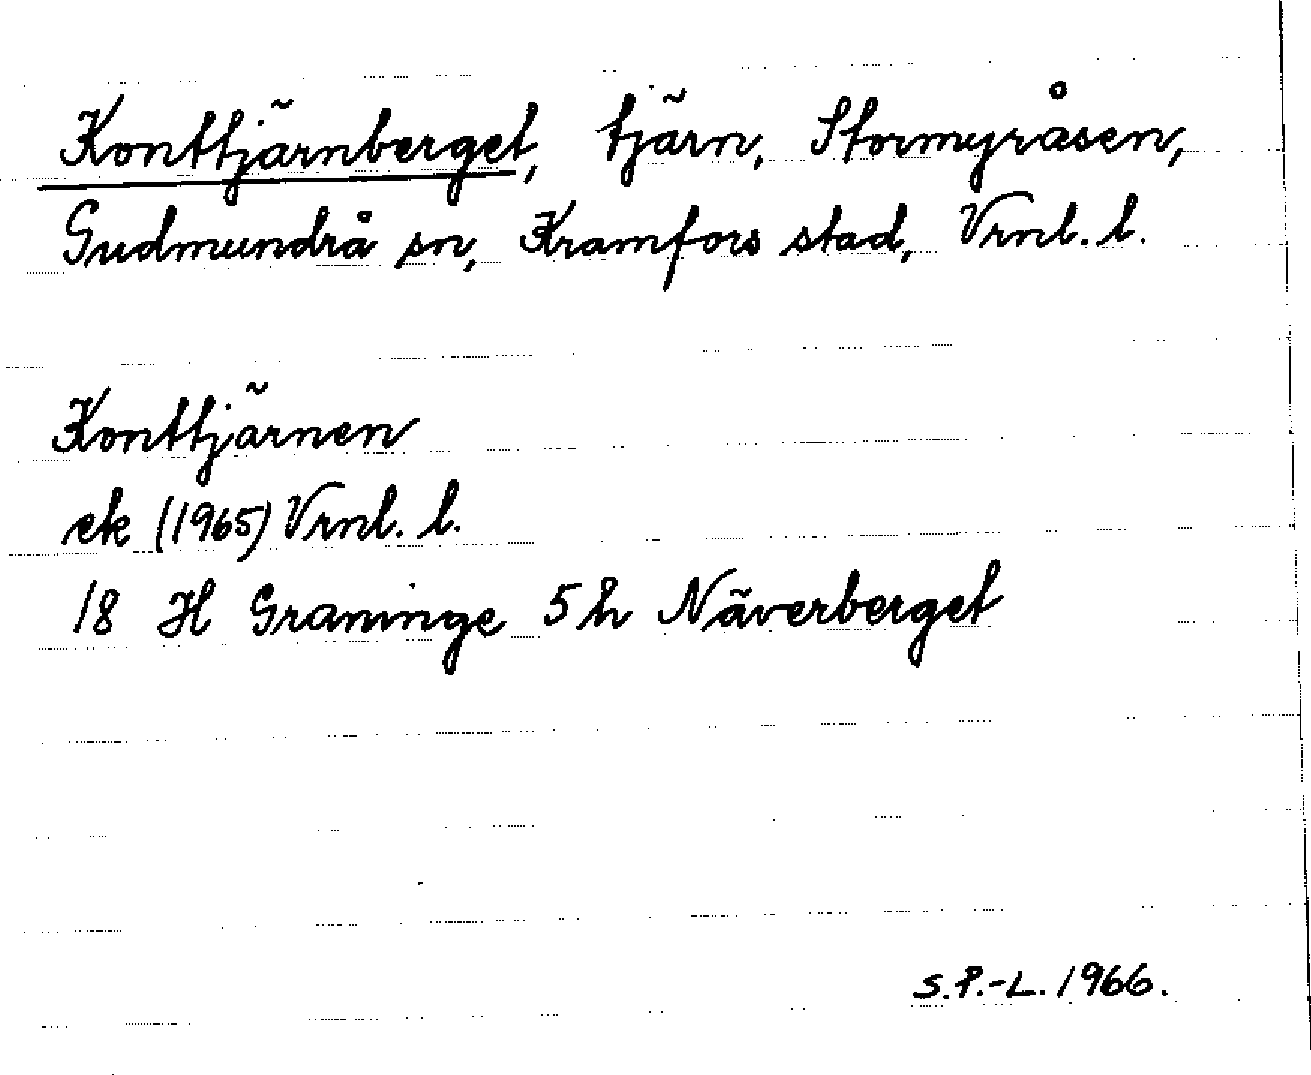 Konttjärnberget, tjärn, Stormyråsen,
Gudmundrå sn, Kramfors stad, Vrnl. l.
Konttjärnen
ek (1965) Vrnl. l.
18 H Graninge 5 h Näverberget
S.P.-L. 1966.